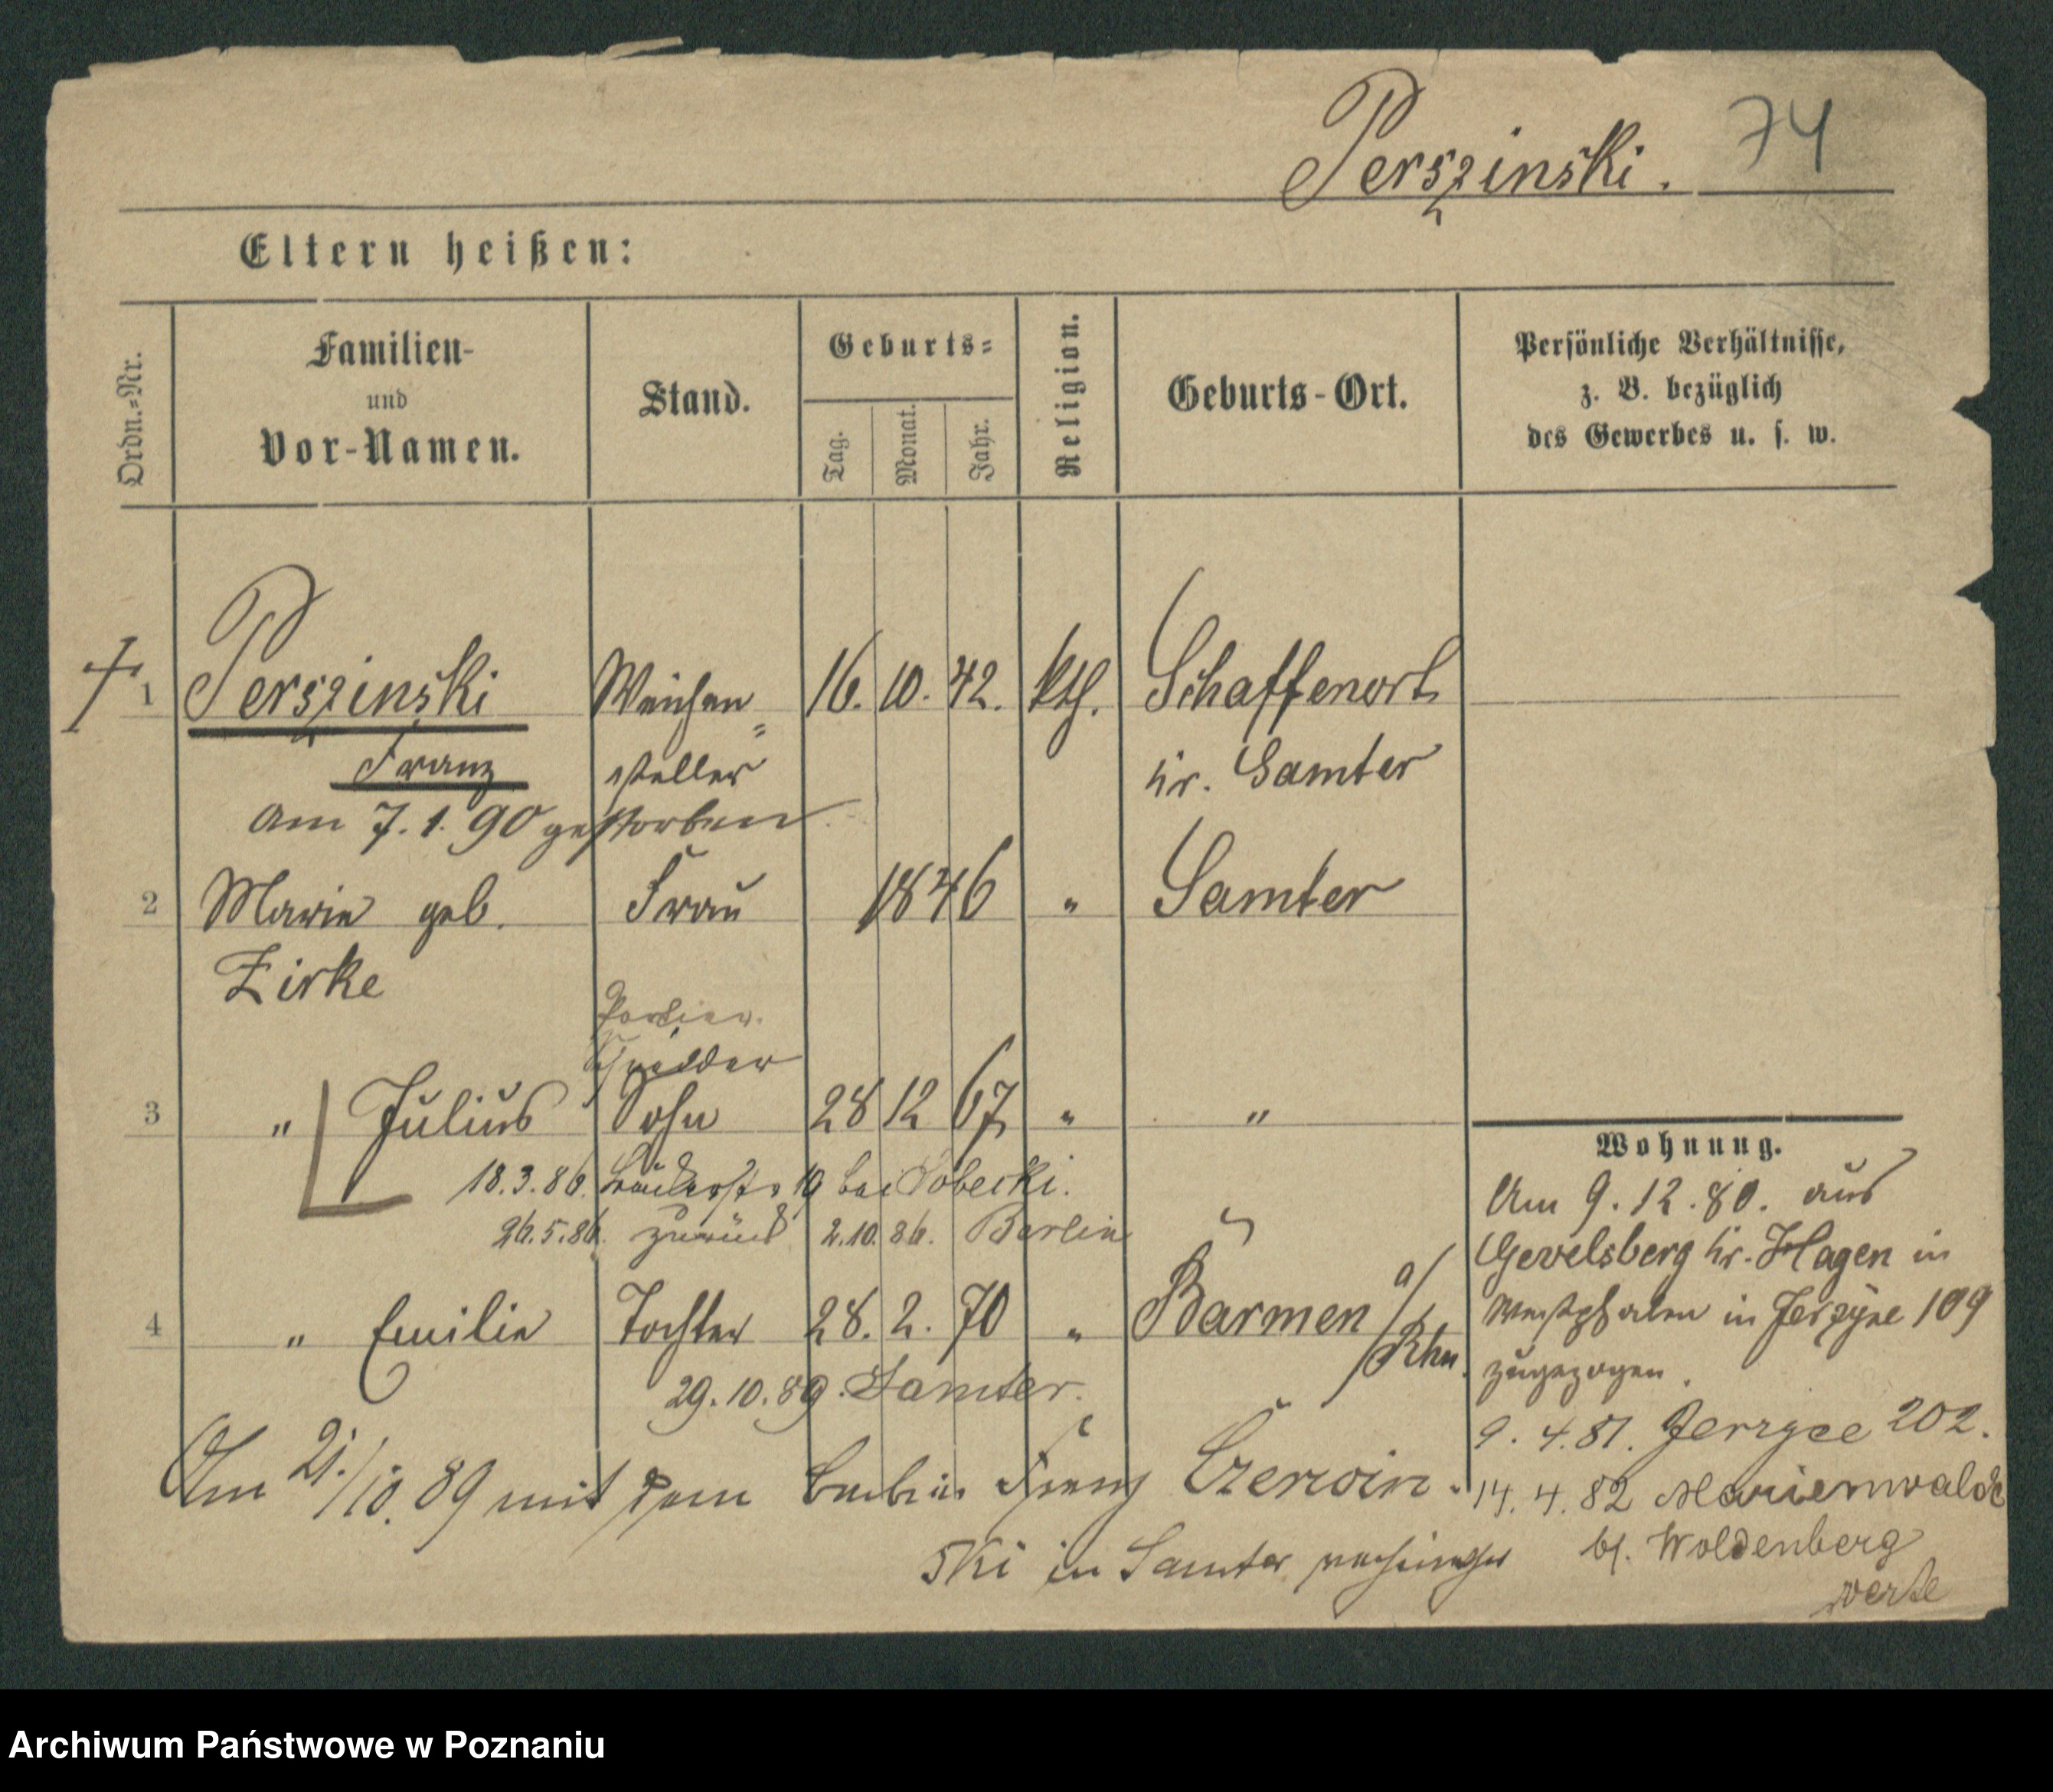 Perszinski.
74
Eltern heißen:
Ordn.=Nr.
Familien-
und
Vor-Namen.
Stand.
Geburts=
Tag.
Monat.
Jahr.
Religion.
Geburts-Ort.
Persönliche Verhältnisse,
z. B. bezüglich
des Gewerbes u. s. w.
1 Perszinski Weichen= 16. 10. 42. kth. Schaffenort
Franz steller Kr. Samter
am 7. 1. 90 gestorben
2 Marie geb. Frau 1846 " Samter
Zirke
Portier.
3 " Julius Sohn 28 12 67 " "
18.3.86. 19 bei Sobecki.
26.5.86. zurück 2.10.86. Berlin
4 " Emilie Tochter 28. 2. 70 " Barmen a/
Rhn.
29.10.89. Samter.
Am 21./10.89 mit dem Franz Czerwin-
ski in Samter
Wohnung.
Am 9.12.80. aus
Gevelsberg Kr. Hagen in
Westphalen in Jerzyce 109
zugezogen.
9.4.81. Jerzyce 202.
14.4.82 Marienwalde
b/. Woldenberg
verte
Archiwum Państwowe w Poznaniu